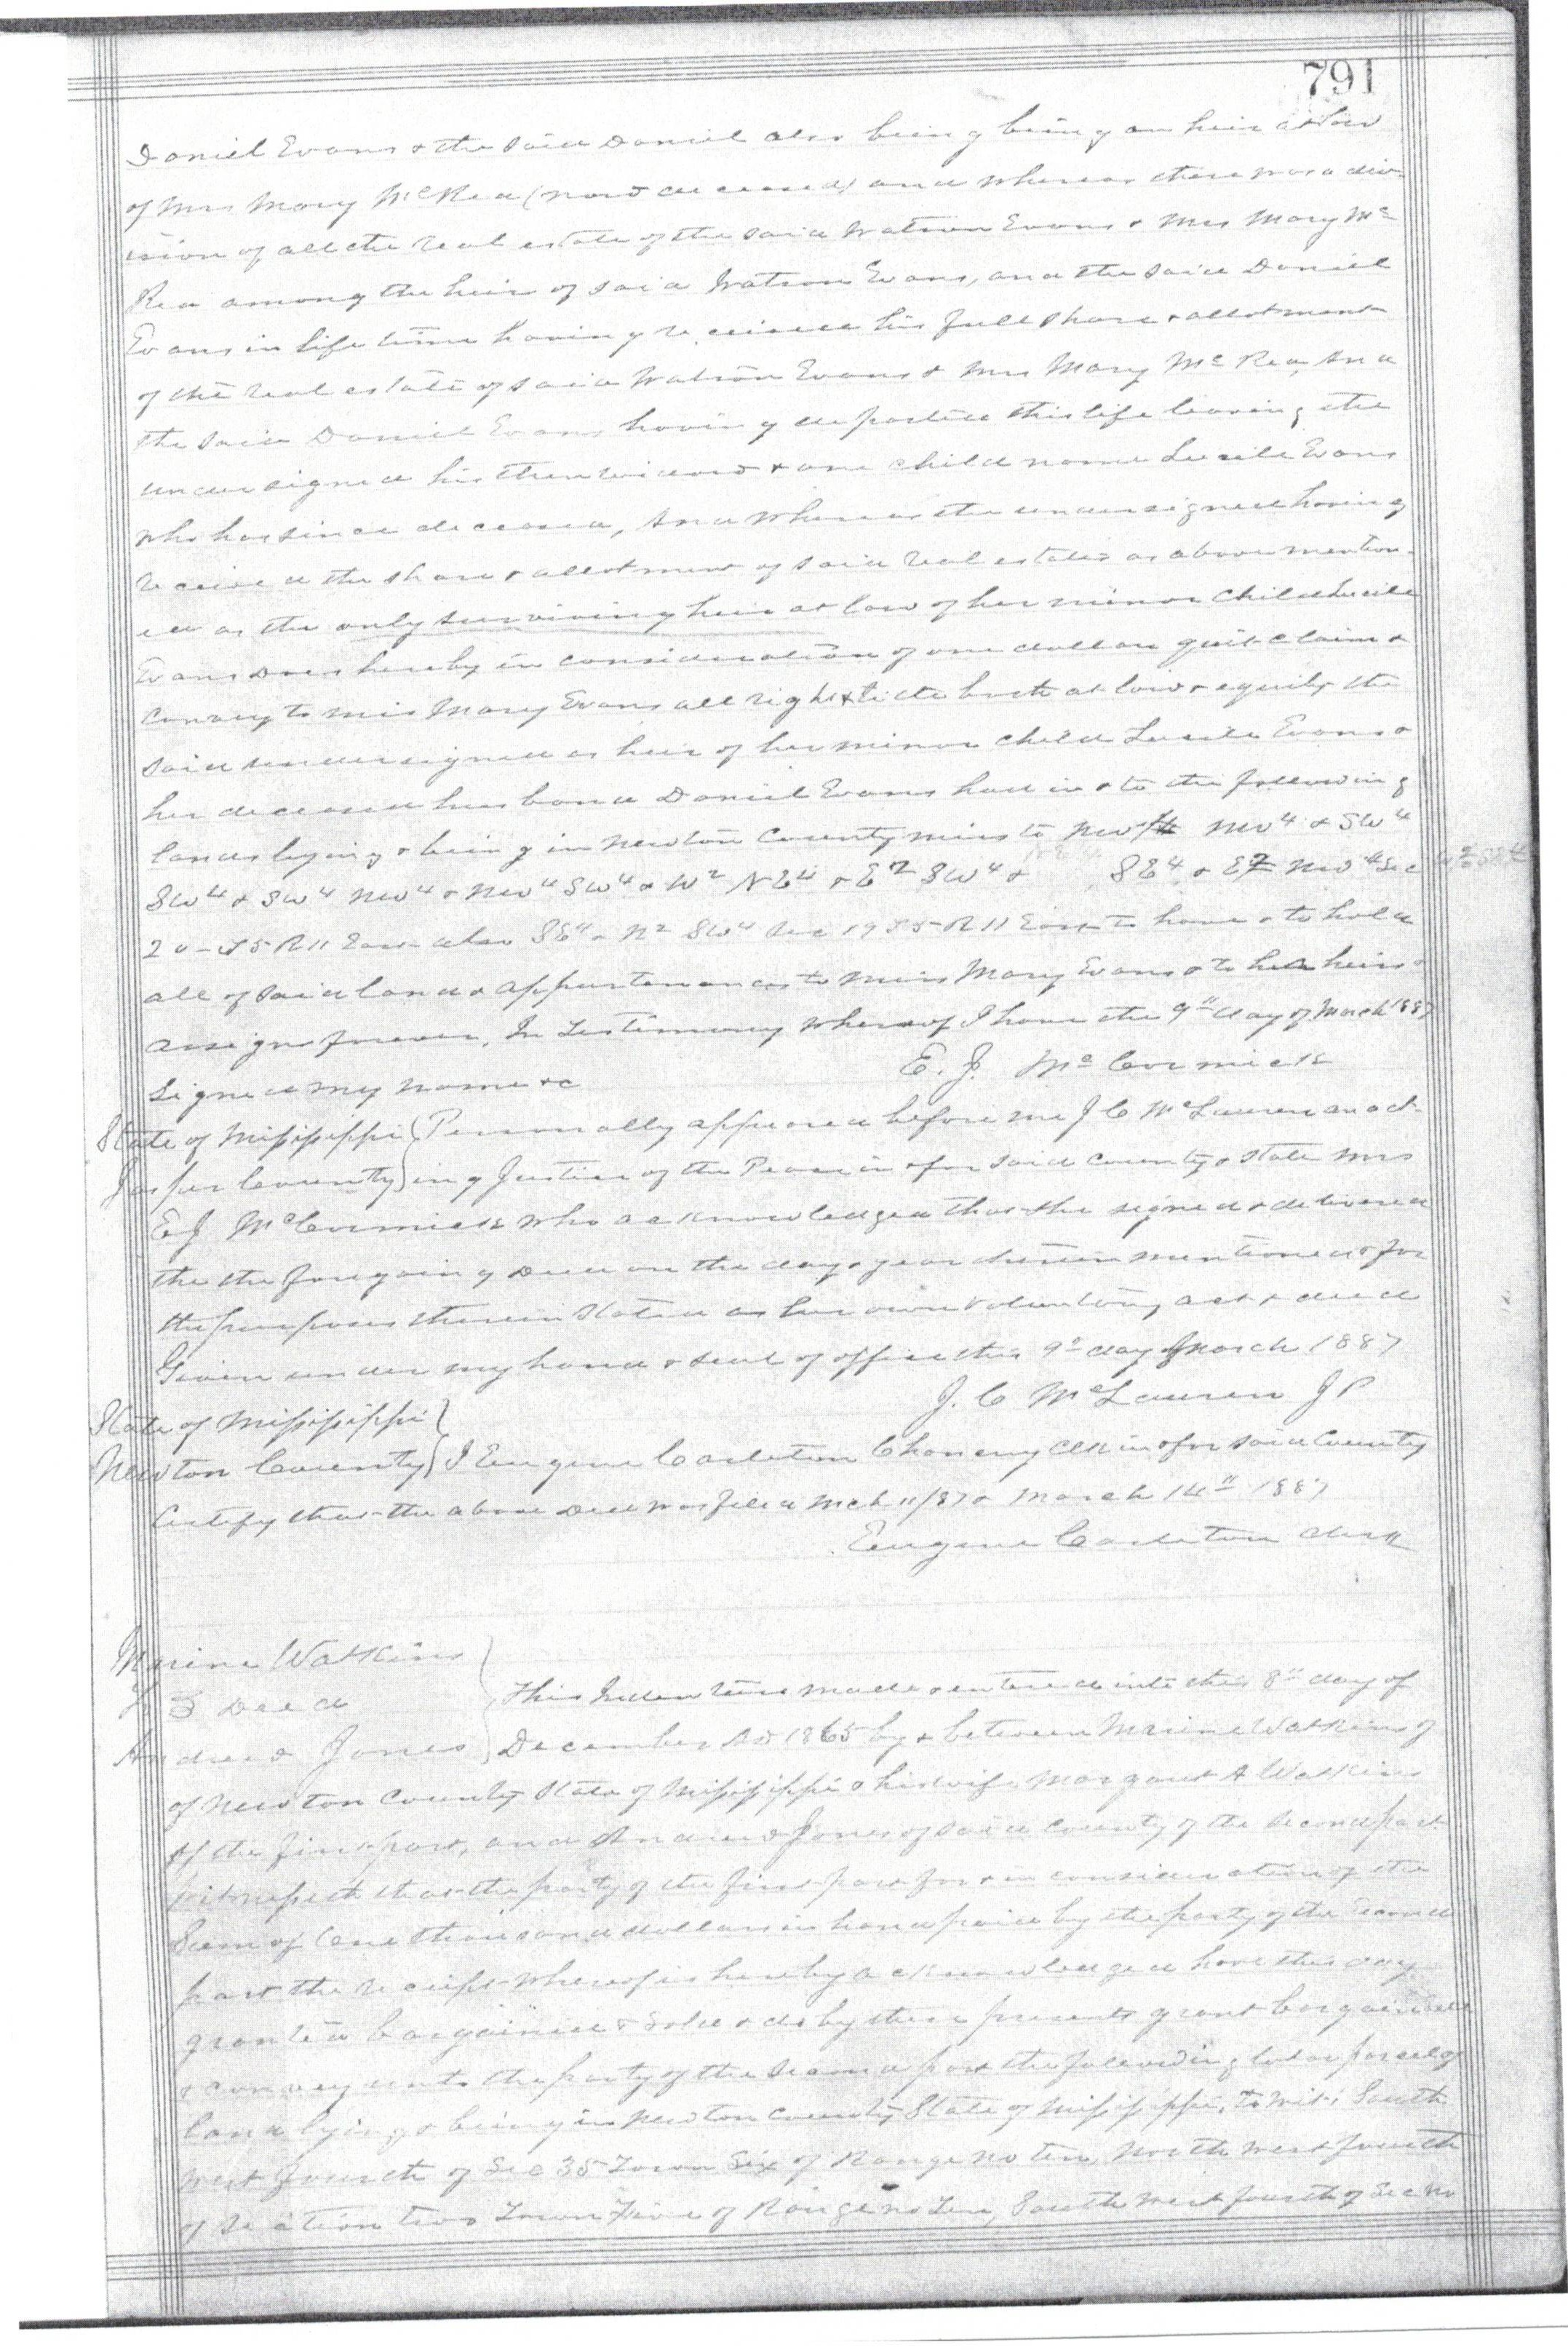 791
Daniel Evans & the said Daniel also being being an heir at law
of Mrs Mary McRea (now deceased) and whereas there was a div-
ision of all the real estate of the said Watson Evans & Mrs Mary Mc
Rea among the heirs of said Watson Evans, and the said Daniel
Evans in life time having received his full share & allotment
of the real estate of said Watson Evans & Mrs Mary McRea, And
the said Daniel Evans having departed this life leaving the
undersigned his then widow & one child name Lucile Evans
who has since deceased, And whereas the undersigned having
received the share & allotment of said real estates as above mention-
ed as the only surviving heir at law of her minor child Lucile
Evans does hereby in consideration of one dollar quit claim &
convey to miss Mary Evans all right & title both at law & equity the
said undersigned as heir of her minor child Lucile Evans &
her deceased husband Daniel Evans had in & to the following
lands lying & being in Newton County miss to NW4 & SW4
SW4 & SW4 NW4 & NW4 SW4 & W2 NE4 & E2 SW4 & SE4 & E2 NW4 Sec
20-T5 R11 East also SE4 & N2 SW4 Sec 19 T5-R11 East to have & to hold
all of said land & appurtenances to miss Mary Evans & to her heirs &
assigns forever, In Testimony whereof I have the 9" day of March 1887
signed my name &c
E. J. McCormick
State of Mississippi } Personally appeared before me J C McLauren an act-
Jasper County } ing Justice of the Peace in & for said County & state Mrs
E J McCormick who acknowledged that she signed & delivered
the the foregoing Deed on the day & year therein mentioned & for
the purposes therein stated as her own voluntary act & deed
Given under my hand & seal of office this 9" day of March 1887
J. C McLauren J P
State of Mississippi }
Newton County } I Eugene Carleton Chancery Clk in & for said County
Certify that the above Deed was filed Mch 11/87 & March 14" 1887
Eugene Carleton Clerk
Marine Watkins
To Deed
Andrew Jones
This Indenture made & entered into this 8" day of
December AD 1865 by & between Marine Watkins of
of Newton County State of Mississippi & his wife Margaret A Watkins
of the first part, and Andrew Jones of said County of the second part
witnesseth that the party of the first part for & in consideration of the
Sum of One thousand dollars in hand paid by the party of the second
part the receipt whereof is hereby acknowledged have this day
granted bargained & sold & do by these presents grant bargain Sell
& convey unto the party of the second part the following lot or parcel of
land lying & being in Newton County State of Mississippi, to wit: South
west fourth of Sec 35 Town Six of Range no ten, North west fourth
of Section two Town Five of Range no Ten, South west fourth of Sec no